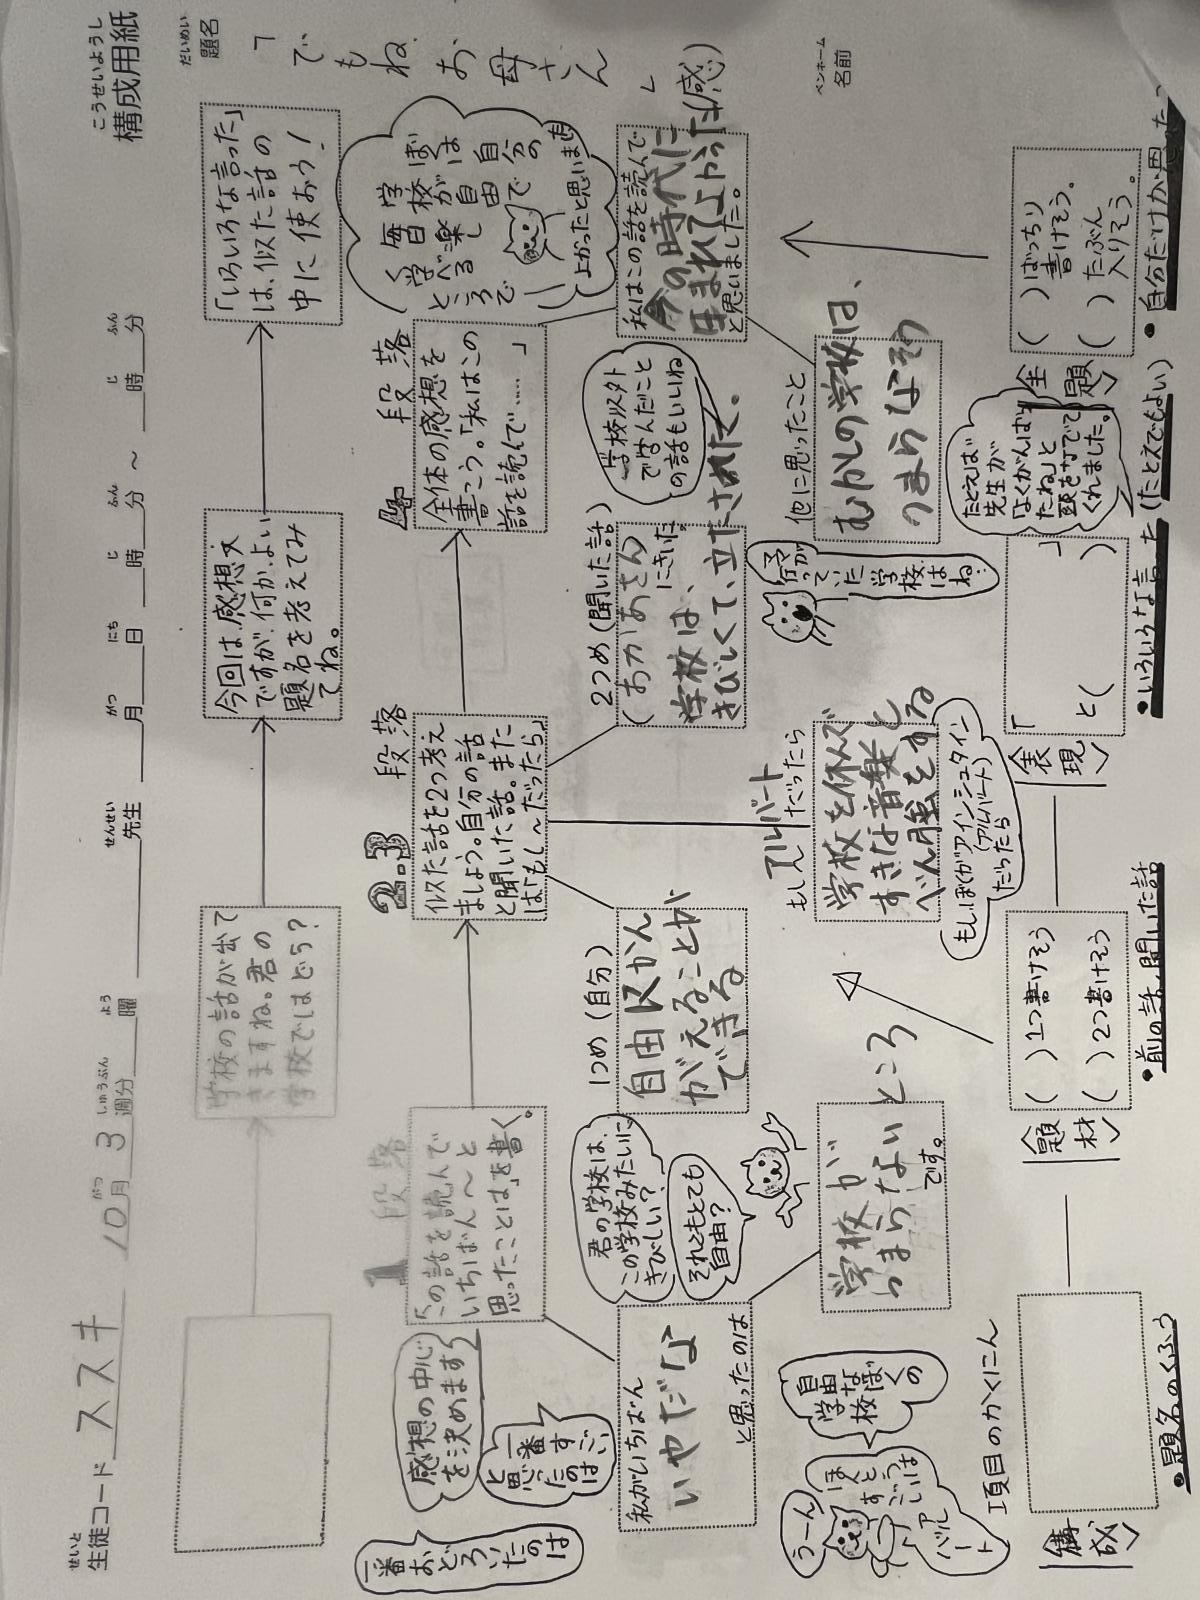 こうせいようし
構成用紙
せいと
生徒コード ススキ 10月 3週分 曜 先生 月 日 時 分 ～ 時 分
がつ しゅうぶん よう せんせい がつ にち じ ふん じ ふん
だいめい
題名
「でもねお母さん」(感)
ペンネーム
名前
学校の話が出て
きますね。君の
学校ではどう？
今回は、感想文
ですが、何か、よい
題名を考えてみ
てね。
「いろいろな言った」
は、似た話の
中に使おう！
1 段落
「この話を読んで
いちばん～と
思ったことは」を書く。
2.3 段落
似た話を2つ考え
ましょう。自分の話
と聞いた話。また
は「もし～だったら」
4 段落
全体の感想を
書こう。「私はこの
話を読んで……」
一番おどろいたのは
感想の中心
を決めます
一番すごい
と思ったのは
君の学校は、
この学校みたいに
きびしい？
それともとても
自由？
私がいちばん
いやだな
と思ったのは
学校が
つまらないところ
です。
うーん
ほんとうに
すごいは
アルバート
自由な
学校
ぼくの
1つめ（自分）
自由にかん
がえることが
できる
2つめ（聞いた話）
（おかあさんにきいた
学校は、
きびしくて、立たされた。
学校以外
で学んだこと
の話もいいね
ママが
行っていた
学校はね…
もしアルバート
だったら
学校を休んで
すきな音楽とべん強をする
もしぼくがアインシュタイン
（アルバート）
だったら
ぼくは
自由で
自分の
学校が
毎日楽し
く学べる
ところで
よかったと思います
私はこの話を読んで
今の時代に
生まれてよかった
と思いました。
他に思ったこと
むかしの学校は、
つまらなそう
項目のかくにん
〈構成〉
・題名のくふう
〈題材〉
（ ）1つ書けそう
（ ）2つ書けそう
・前の話、聞いた話
〈表現〉
「 」
と（ ）
・いろいろな言った（たとえでもよい）
たとえば
先生が
「よくがんばっ
たね」と
頭をなでて
くれました。
〈主題〉
（ ）ばっちり
書けそう。
（ ）たぶん
入りそう。
・自分だけが思った